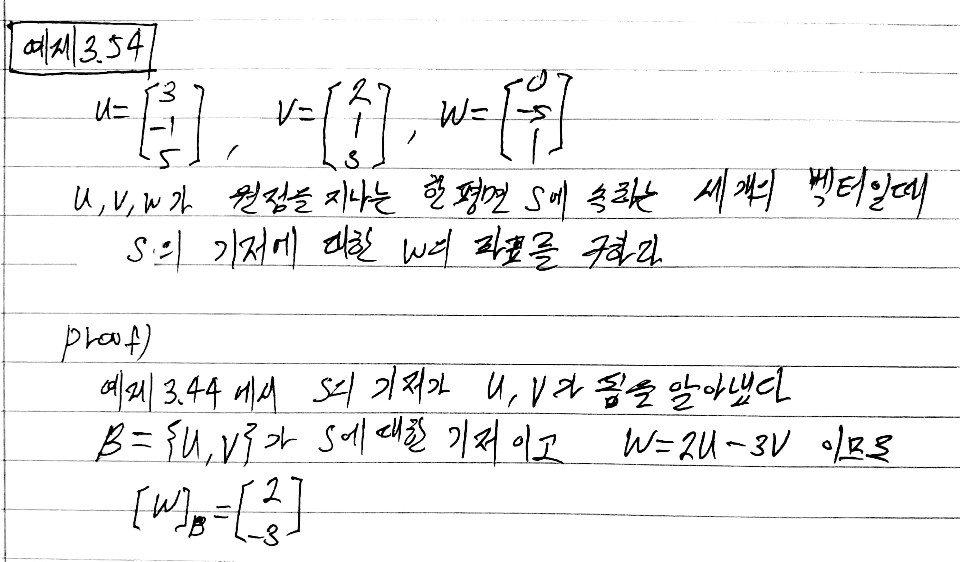 예제 3.54
U = [3 -1 5], V = [2 1 3], W = [0 -5 1]
U, V, W가 원점을 지나는 한 평면 S에 속하는 세 개의 벡터일때
S의 기저에 대한 W의 좌표를 구하라
proof)
예제 3.44 에서 S의 기저가 U, V가 됨을 알아냈다
B = {U, V}가 S에 대한 기저 이고 W = 2U - 3V 이므로
[W]B = [2 -3]